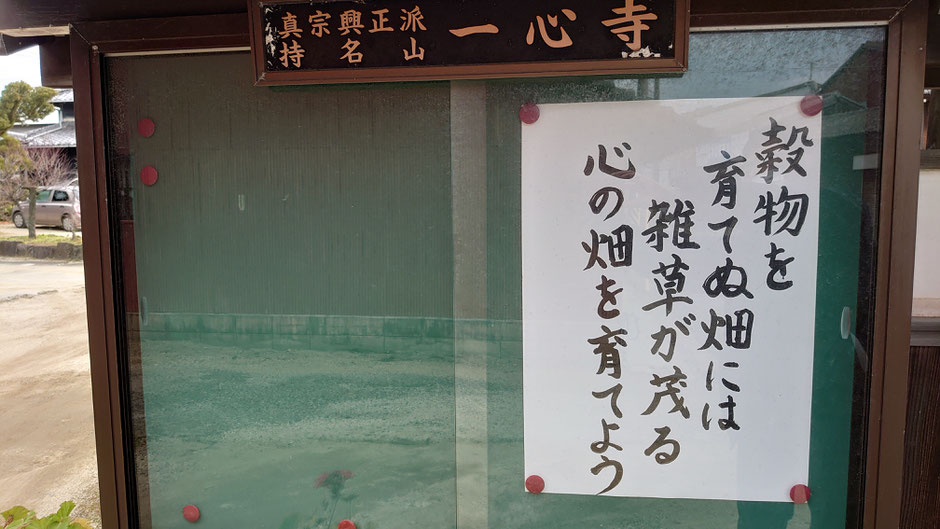 真宗興正派
持名山
一心寺
穀物を
育てぬ畑には
雑草が茂る
心の畑を育てよう